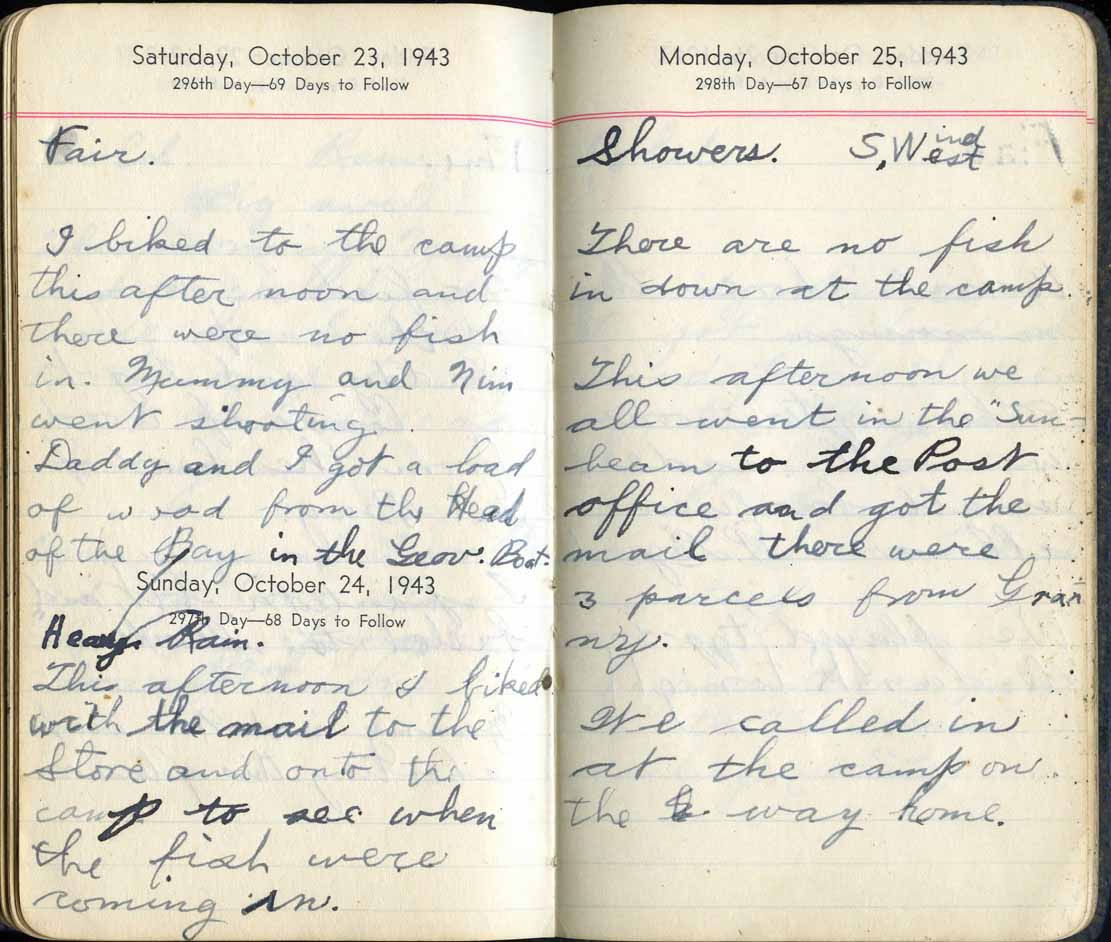 Saturday, October 23, 1943
296th Day—69 Days to Follow
Fair.
I biked to the camp
this after noon and
there were no fish
in. Mummy and Nim
went shooting.
Daddy and I got a load
of wood from the Head
of the Bay in the Gov. Boat.
Sunday, October 24, 1943
297th Day—68 Days to Follow
Heavy Rain.
This afternoon I biked
with the mail to the
Store and onto the
camp to see when
the fish were
coming in.
Monday, October 25, 1943
298th Day—67 Days to Follow
Showers. S, West Wind
There are no fish
in down at the camp.
This afternoon we
all went in the "Sun-
beam to the Post
office and got the
mail there were
3 parcels from Gran
ny.
We called in
at the camp on
the way home.